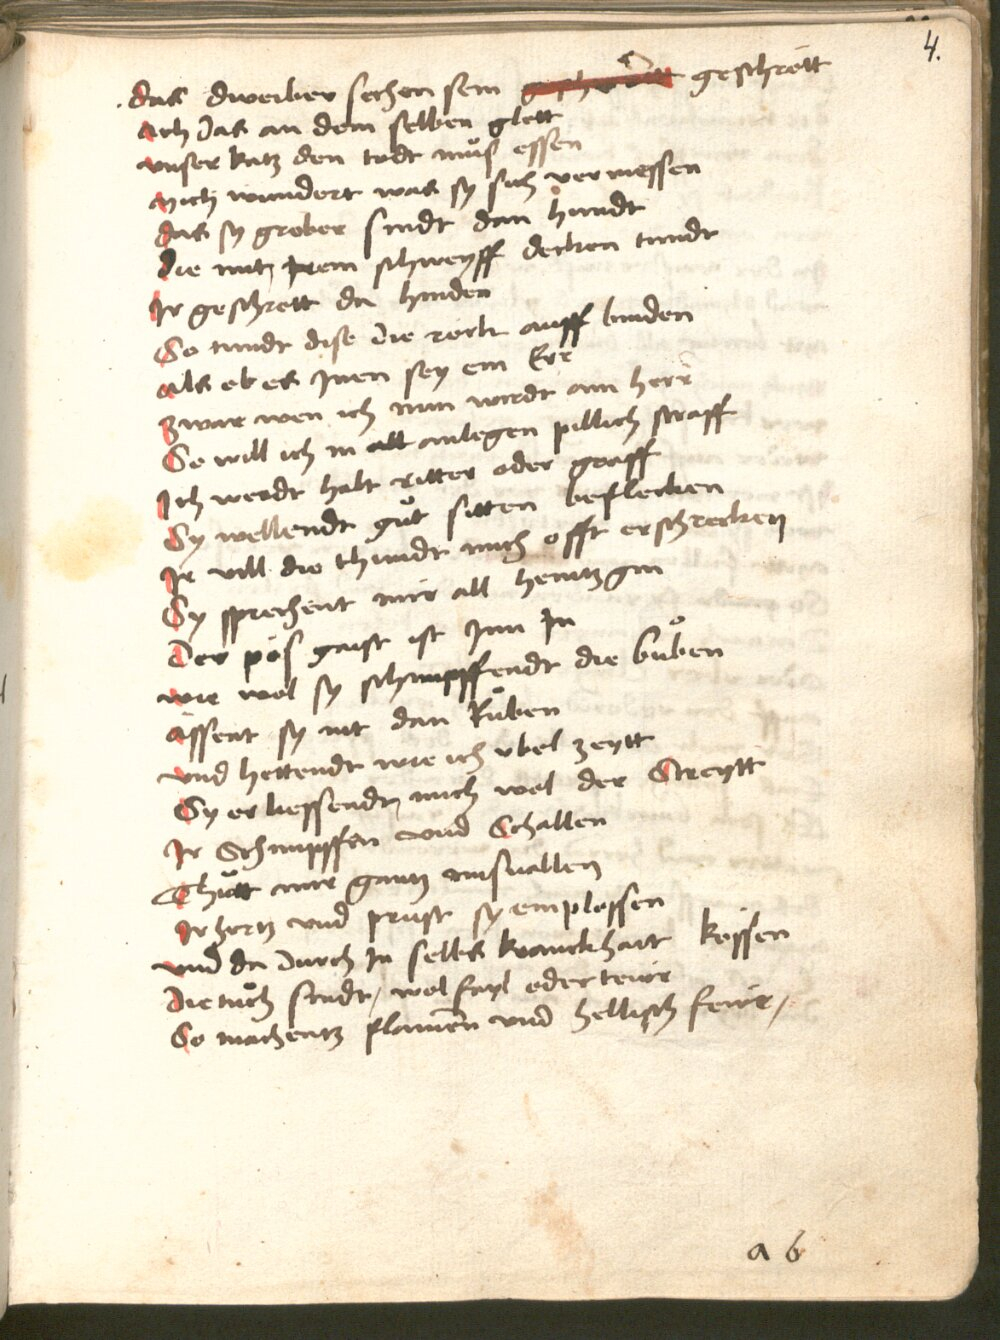 4.
das dweiber sechen sein geschrött
Ach das an dem selben glett
vnser katz den todt müs essen
Mich wundert was sy sich vermessen
das sy grober sindt dan hundt
Die mitz jrem schweyff decken tundt
Ir geschrett da hinden
So tundt dise die röck auff binden
als ob es Inen sey ein Eer
Zwar wen ich nun wirdt ain herr
So will ich in all anlegen pillich straff
Ich werdt halt ritter oder graff
Sy wellendt gůt sitten beflecken
Ir vill die thundt mich offt erschrecken
Sy sprechent mir all henitz gin
Der pös gaist ist Inn In
wie wol sy schmpffendt die bůben
ässent sy nit dan Růben
vnd hettendt wie ich vbel zeytt
Sy erliessendt mich wol der Streytt
Ir Schimpffen vnd Schallen
Thůtt mir gantz misuallen
Ir hertz vnd prust sy emplossen
vnd da durch In selbs kranckhait kossen
Die tůch sindt / wol fayl oder teẅr
So machentz flamen vnd hellisch feẅr /
a 6